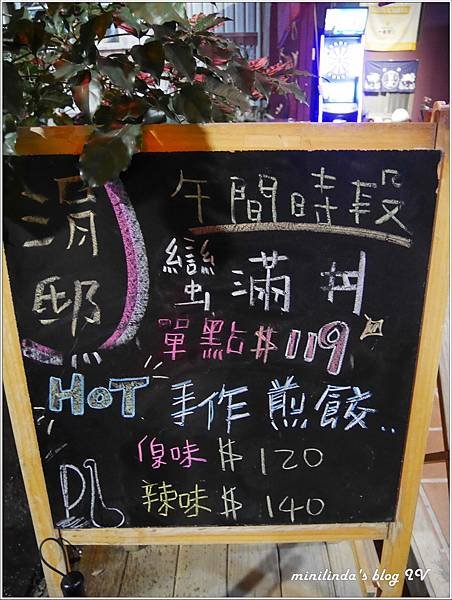 涓邸
午間時段
蠻滿丼
單點$119
HOT 手作煎餃..
原味 $120
辣味 $140
minilinda's blog IV